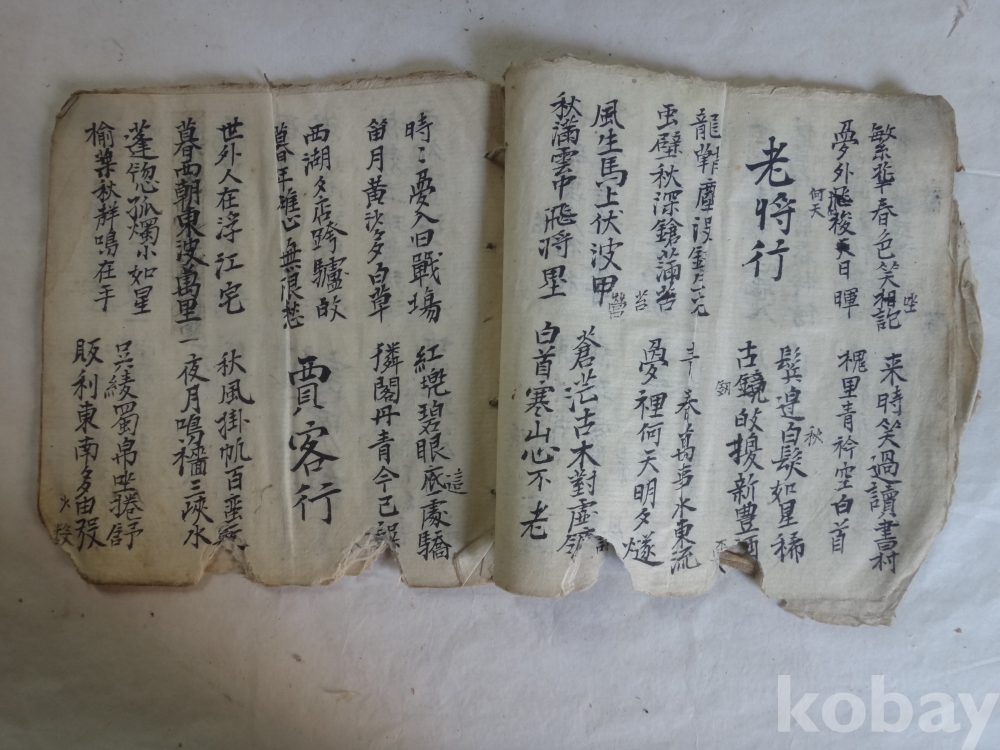 繁華春色笑相記 来時笑過讀書村
夢外飛梭天日暉 槐里青衿空白首
何天
老將行
鬂邊白髮如星稀
秋
古鏡故擾新豊酒
龍韜塵沒 青春萬事水東流
虫壁秋深鎗蒲苔 夢裡何天明夕燧
苔
風生馬上伏波甲 蒼茫古木對虛
營
秋滿雲中飛將壘 白首寒山心不老
時〻憂入旧戰塲 紅 碧眼底處驕
這
笛月黃沙多白草 閣丹青今已誤
西湖夕店跨驢故
暮年雄心無限愁
賈客行
世外人在浮江宅 秋風掛帆百蛮
暮西朝東波萬里 一夜月鳴檣三峽水
蓬窓孤燭小如星 呉綾蜀帛坐捲舒
榆葉秋群鳴在手 販利東南多由發
kobay